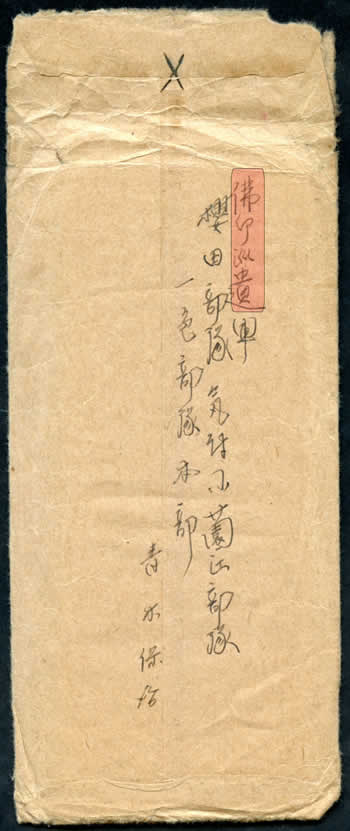 佛印派遣軍
櫻田部隊氣付小薗江部隊
一色部隊本部
青木保治